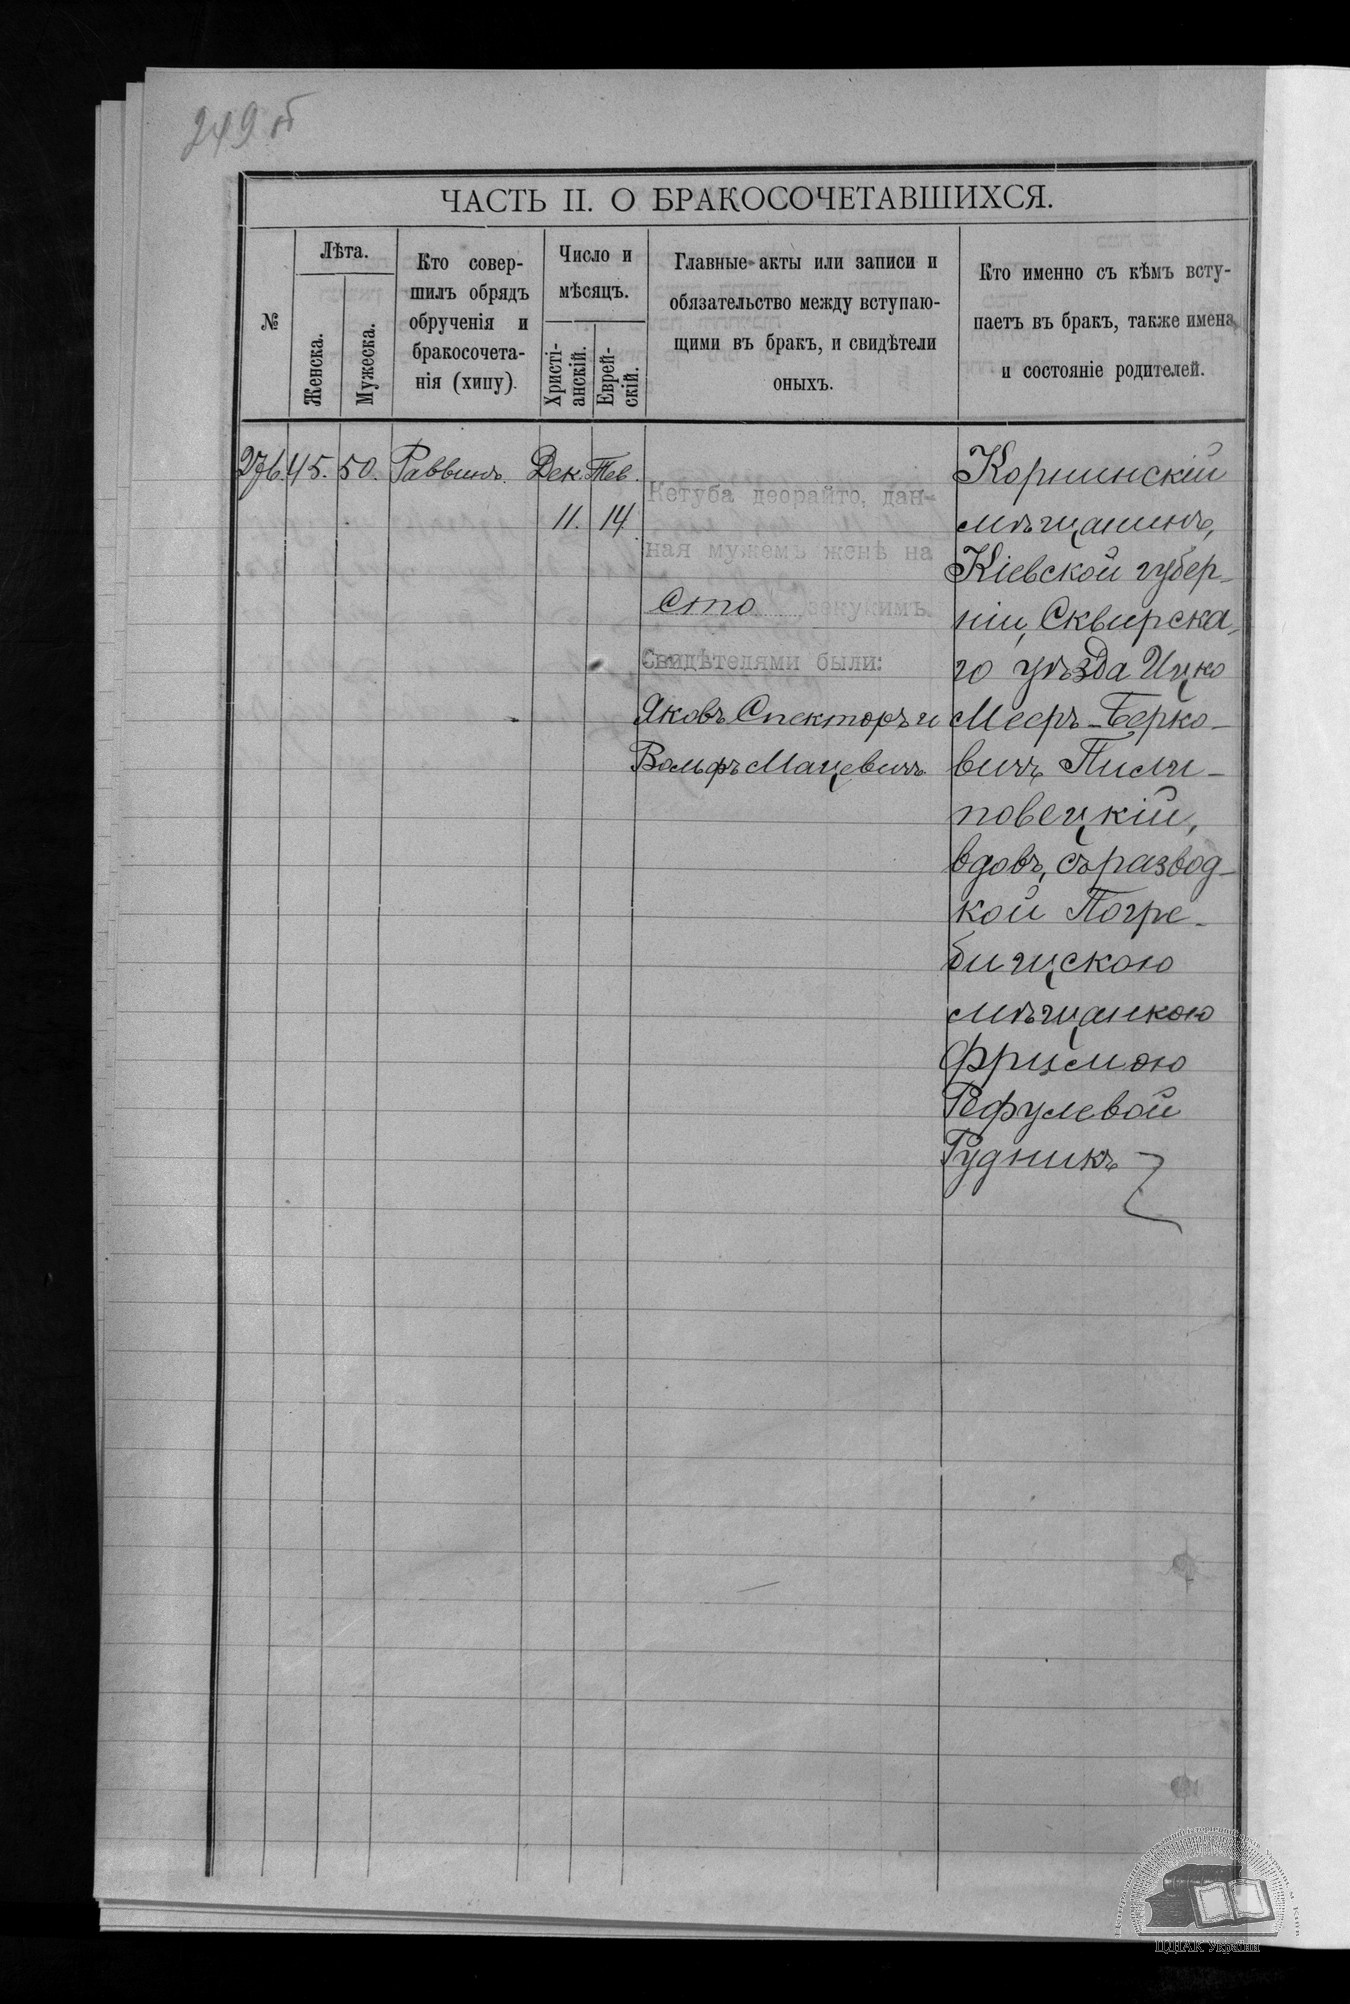 249 об
ЧАСТЬ II. О БРАКОСОЧЕТАВШИХСЯ.
№
Лѣта.
Женска.
Мужеска.
Кто совер-
шилъ обрядъ
обрученія и
бракосочета-
нія (хипу).
Число и
мѣсяцъ.
Христі-
анскій.
Еврей-
скій.
Главные акты или записи и
обязательство между вступаю-
щими въ бракъ, и свидѣтели
оныхъ.
Кто именно съ кѣмъ всту-
паетъ въ бракъ, также имена
и состояніе родителей.
276.
45.
50.
Раввинъ.
Дек.
11.
Тев.
14.
Кетуба деорайто, дан-
ная мужемъ женѣ на
сто зекукимъ.
Свидѣтелями были:
Яковъ Спекторъ и
Вольфъ Мацевичъ
Корнинскій
мѣщанинъ,
Кіевской губер-
ніи, Сквирска-
го уѣзда Ицко
Мееръ-Берко-
вичъ Пили-
повецкій,
вдовъ, съ развод-
кой Погре-
бищскою
мѣщанкою
Фримою
Рефулевой
Рудникъ
ЦДІАК України